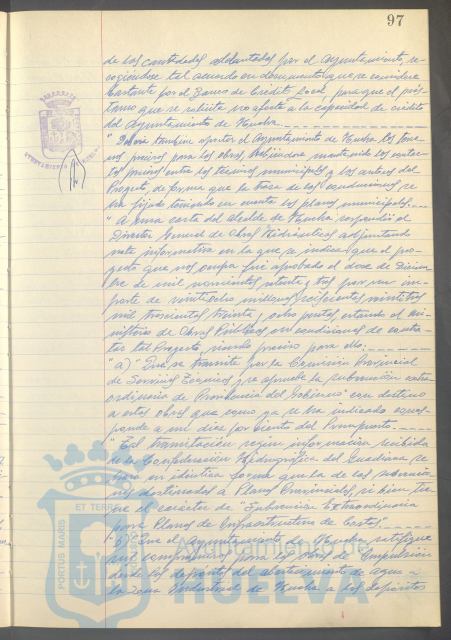 97
de las cantidades adelantadas por el Ayuntamiento, re-
cogiéndose tal acuerdo en documento que se considere
bastante por el Banco de Crédito Local, para que el prés-
tamo que se solicite no afecte a la capacidad de crédito
del Ayuntamiento de Huelva.
"Deberá también aportar el Ayuntamiento de Huelva los terre-
nos precisos para las obras habiéndose mantenido los contac-
tos precisos entre los técnicos municipales y los autores del
Proyecto, de forma que la traza de las conducciones se
ha fijado teniendo en cuenta los planes municipales.
"A una carta del alcalde de Huelva respondió el
Director General de Obras Hidráulicas adjuntando
nota informativa en la que se indica: que el pro-
yecto que nos ocupa fué aprobado el doce de Diciem-
bre de mil novecientos setenta y tres por un im-
porte de veintiocho millones seiscientos veintitres
mil trescientas treinta y ocho pesetas estando el Mi-
nisterio de Obras Públicas en condiciones de contra-
tar tal Proyecto, siendo preciso para ello:
"a) "Que se tramite por la Comisión Provincial
de Servicios Técnicos y se apruebe la subvención extra-
ordinaria de Presidencia del Gobierno con destino
a estas obras que como ya se ha indicado corres-
ponde a un diez por ciento del Presupuesto.
"Tal tramitación según informativa recibida
de la Confederación Hidrográfica del Guadiana se
hará en idéntica forma que la de las subvencio-
nes destinadas a Planes Provinciales, si bien tie-
ne el carácter de "Subvención Extraordinaria
para Planes de Infraestructura de Costas".
"b) "Que el Ayuntamiento de Huelva ratifique
sus compromisos para la obra de "Impulsión
desde los depósitos del abastecimiento de agua a
la Zona Industrial de Huelva a los depósitos
PORTUS MARIS
ET TERRAE
Ayuntamiento de
HUELVA